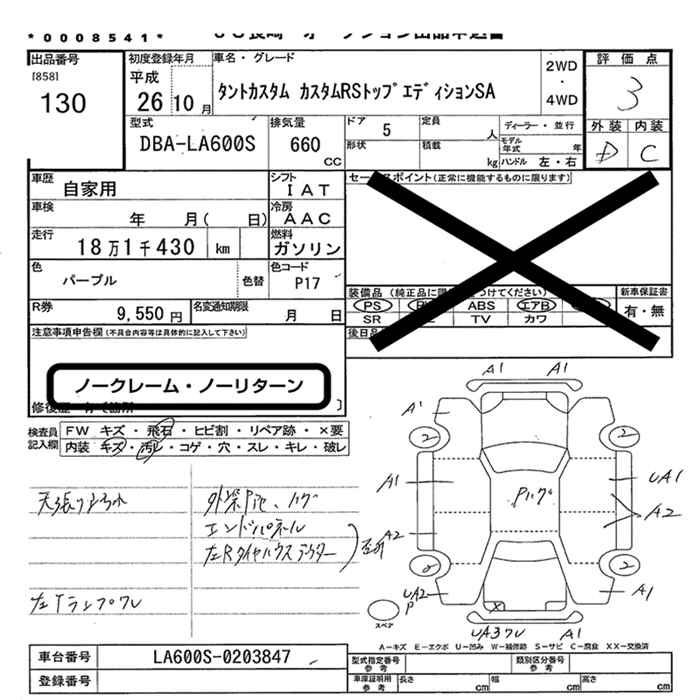 *0008541*
出品番号
[858]
130
初度登録年月
平成
26 10 月
車名・グレード
タントカスタム カスタムRSトップエディションSA
2WD
・
4WD
評価点
3
外装 内装
D C
型式
DBA-LA600S
排気量
660
CC
ドア 5
形状
定員
人
積載
kg
ディーラー・並行
モデル年式 年
ハンドル 左・右
車歴
自家用
シフト
IAT
車検
年 月( 日)
冷房
AAC
走行
18万1千430 km
燃料
ガソリン
色
パープル
色替
色コード
P17
R券
9,550 円
名変通知期限
月 日
注意事項申告欄 (不具合内容等は具体的に記入して下さい)
ノークレーム・ノーリターン
セールスポイント(正常に機能するものに限ります)
装備品
PS
ABS
エアB
SR
TV
カワ
新車保証書
有・無
後日品
検査員記入欄
FW キズ・飛石・ヒビ割・リペア跡・×要
内装 キズ・汚レ・コゲ・穴・スレ・キレ・破レ
エンドパネル
左Tランプワレ
A1 A1
A1
2 2
A1
UA1
A2
A2
2 2
UA2
P
A1
UA3ワレ A1
スペア
A-キズ E-エクボ U-凹み W-補修跡 S-サビ C-腐食 XX-交換済
車台番号
LA600S-0203847
登録番号
型式指定番号
参考
類別区分番号
参考
車庫証明用
参考
長さ cm
幅 cm
高さ cm